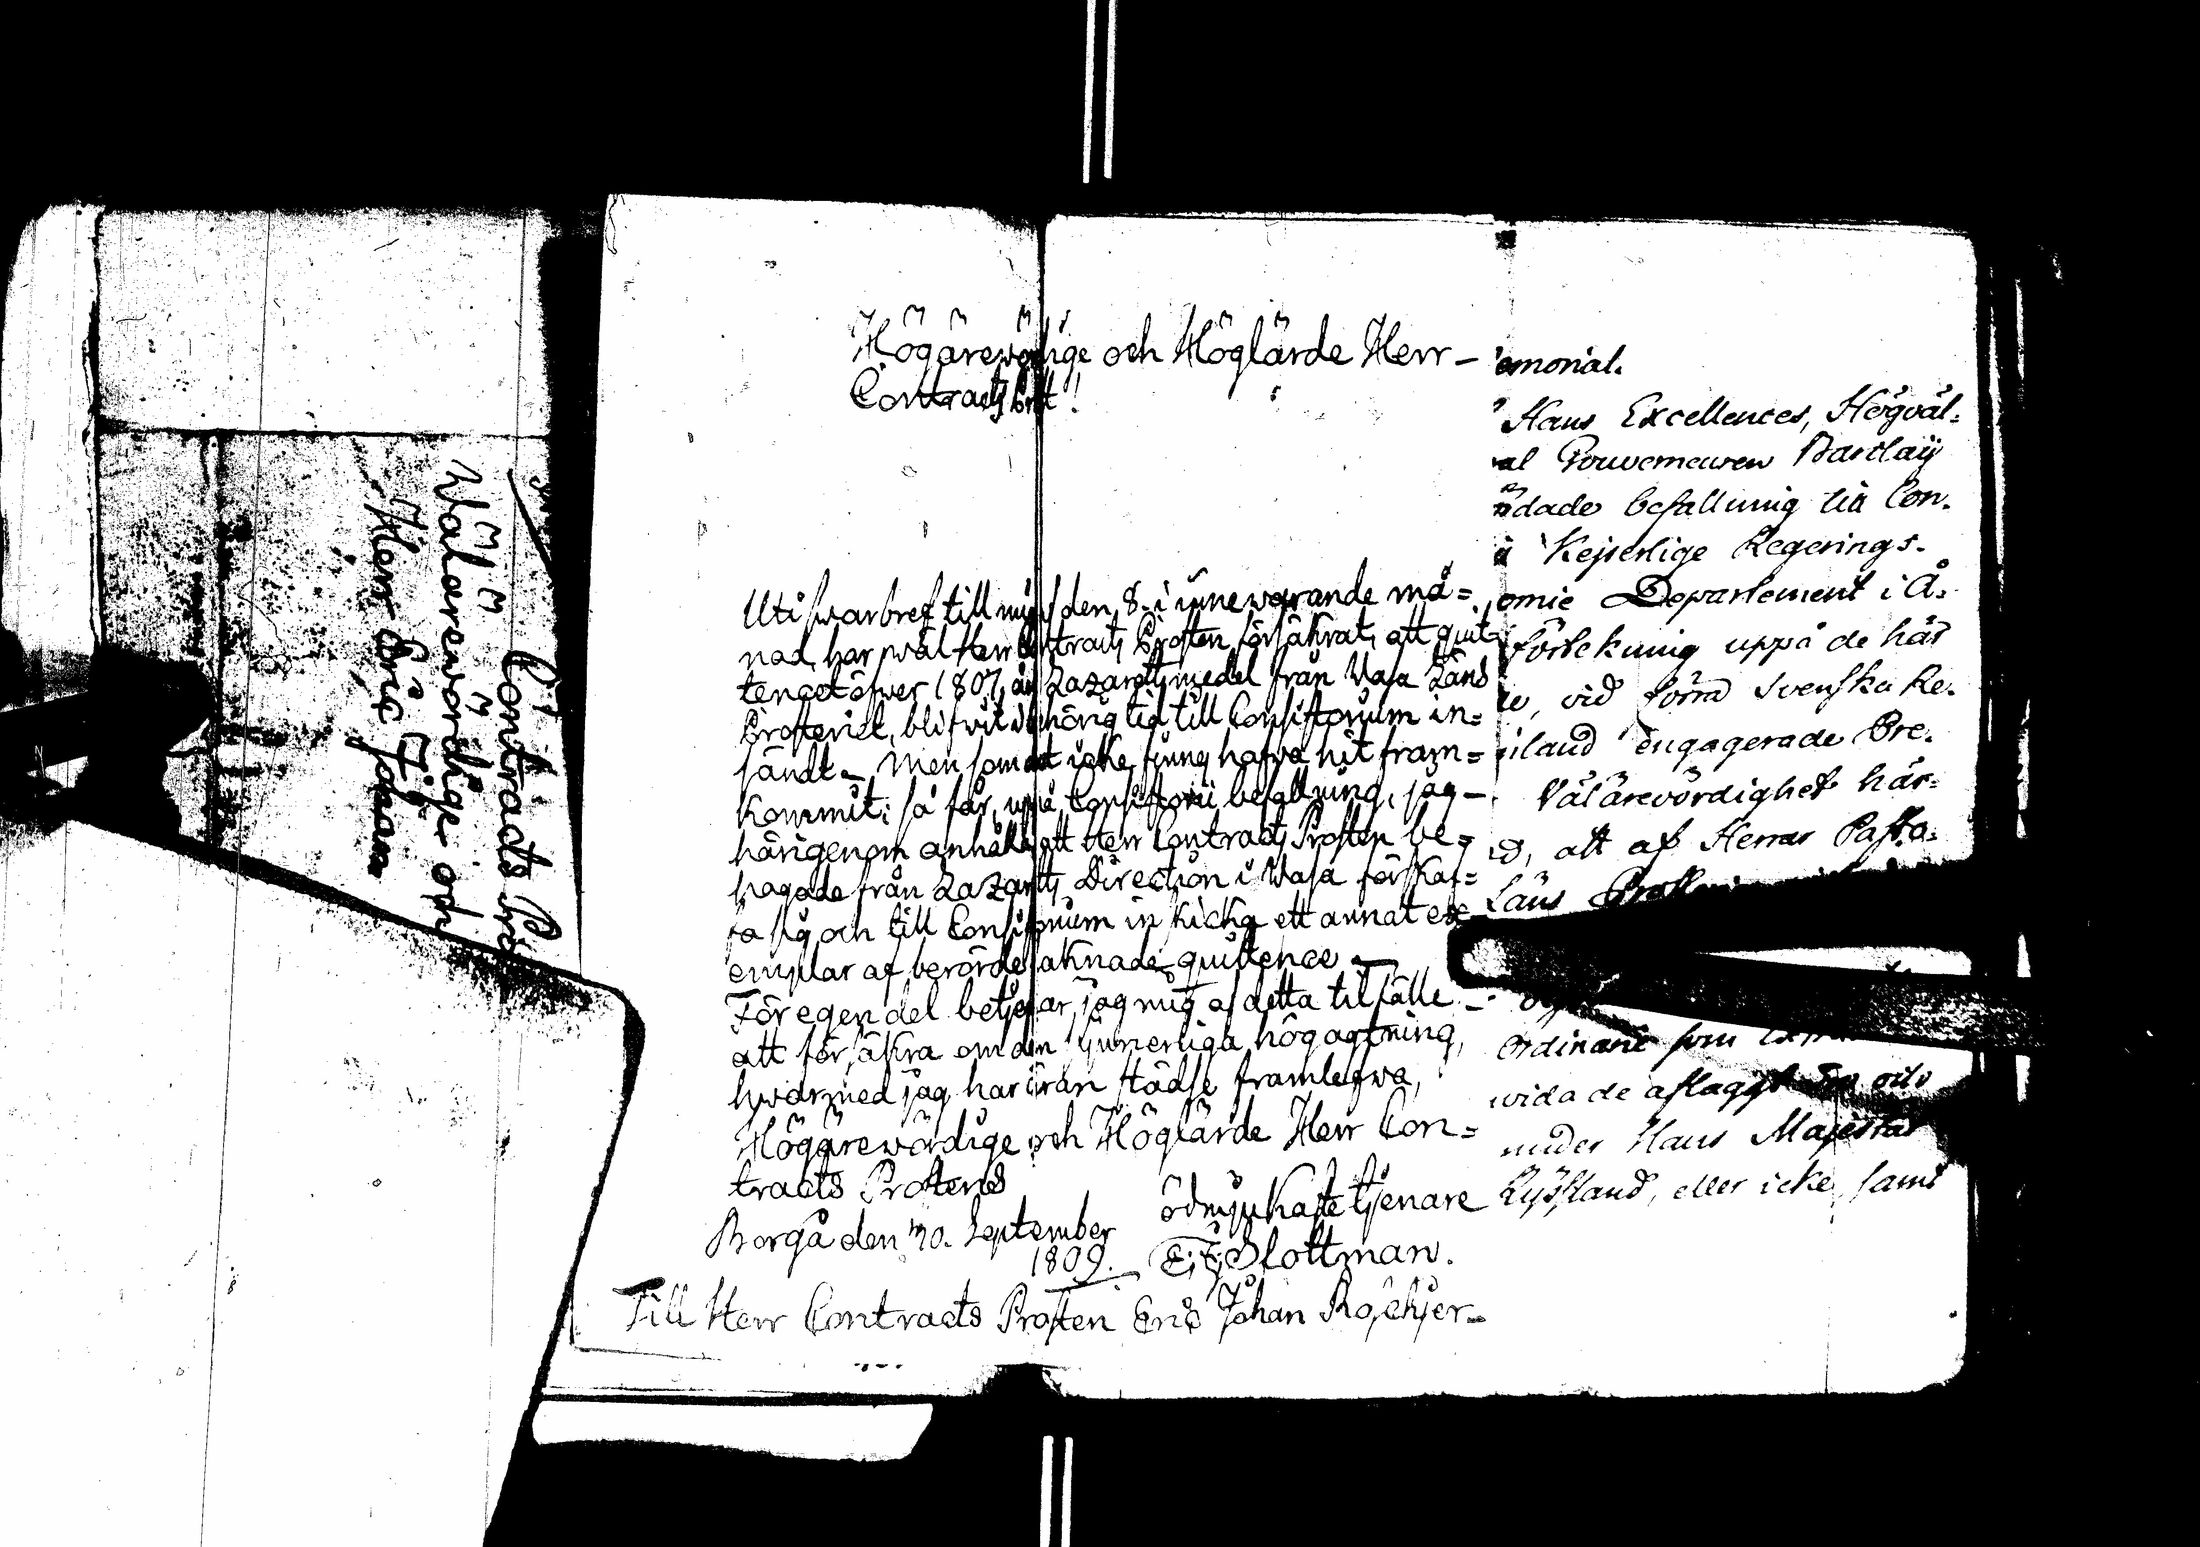 Contracts Pro
Wälärewördige och
Herr Eric Johan
Högärewördige och Höglärde Herr
Contracts Prost!
Uti svarbref till mig af den 8. i innewarande må=
nad, har wäl Herr Contracts Prosten försäkrat, att quit
tencet öfwer 1807 års Lazaretts medel från Wasa Läns
Prosteriet, blifvit i behörig tid till Consistorium in=
sändt. Men som det icke finnes hafva hit fram=
kommit; så får, uppå Consistorii befallning, jag
härigenom anhålla, att Herr Contracts Prosten be=
hagade från Lazaretts Direction i Wasa förskaf=
fa sig och till Consistorium inskicka ett annat ex
emplar af berörde saknade quittence
För egen del betjenar jag mig af detta tilfälle
att försäkra om den innerliga högagtning,
hwarmed jag har äran städse framlefwa,
Högärewördige och Höglärde Herr Con=
tracts Prostens
ödmjukaste tjenare
Borgå den 20. September
1809.
Slottman.
Till Herr Contracts Prosten Eric Johan
emorial.
Hans Excellences, Högväl=
al Gouverneuren Barclaÿ
ådade befallning til Con.
Kejserlige Regerings.
omie Departement i Å.
förtekning uppå de här
vid förra Svenska Re.
land engagerade Pre.
Välärevördighet här=
att af Herrar Pasto.
Läns
ordinarie som
wida de aflaggt
under Hans Majestät
Ryssland, eller icke, samt